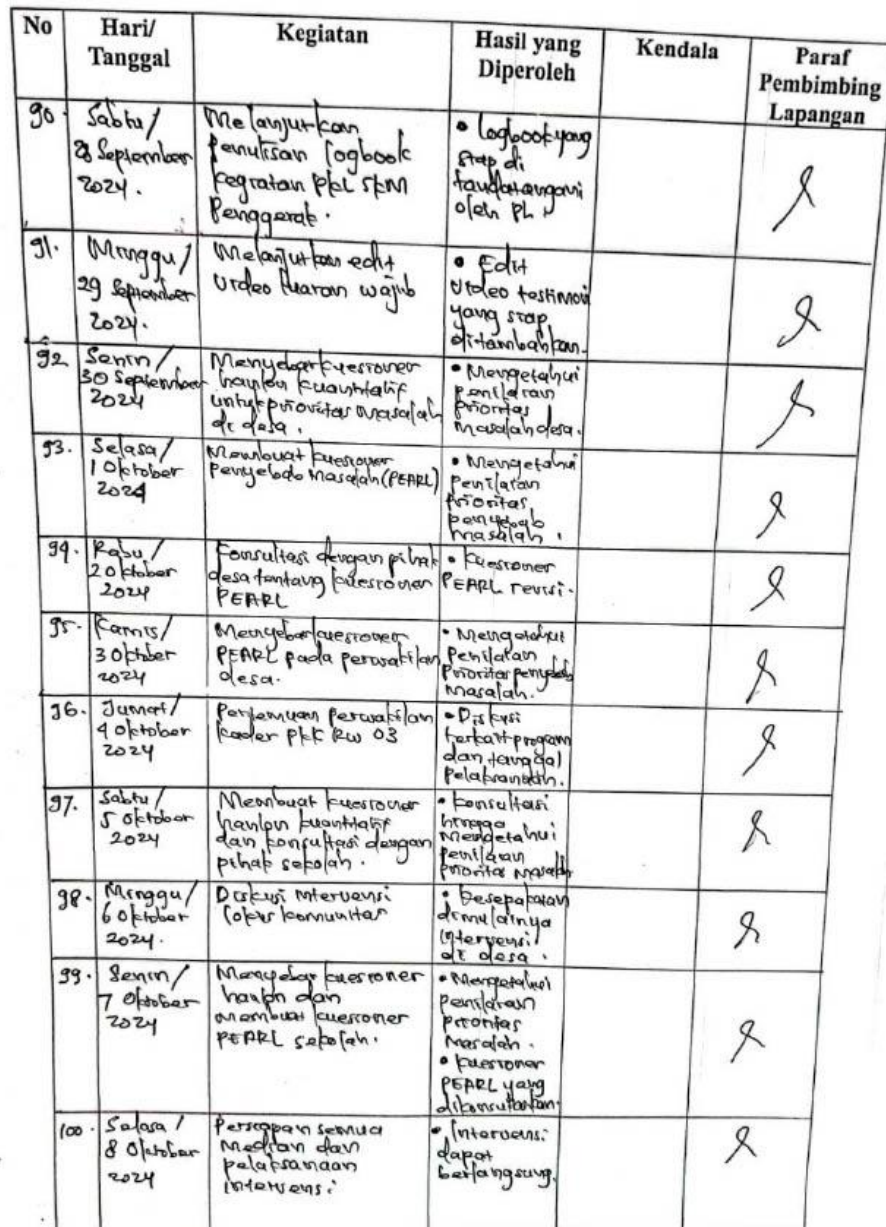 No Hari/ Tanggal Kegiatan Hasil yang Diperoleh Kendala Paraf Pembimbing Lapangan
90.
Sabtu/
28 September
2024.
Melanjutkan
Penulisan logbook
kegiatan PKL SKM
Penggerak.
• logbook yang
siap di
tandatangani
oleh PL
91.
Minggu/
29 September
2024.
Melanjutkan edit
video luaran wajib
• Edit
video testimoni
yang siap
ditambahkan.
92
Senin/
30 September
2024
Menyebar kuesioner
hanlon kuantitatif
untuk prioritas masalah
di desa.
• Mengetahui
penilaian
prioritas
masalah desa.
93.
Selasa/
1 Oktober
2024
Membuat kuesioner
Penyebab Masalah (PEARL)
• Mengetahui
penilaian
prioritas
penyebab
masalah.
94.
Rabu/
2 Oktober
2024
Konsultasi dengan pihak
desa tentang kuesioner
PEARL
• kuesioner
PEARL revisi.
95.
Kamis/
3 Oktober
2024
Menyebar kuesioner
PEARL pada perwakilan
desa.
• Mengetahui
Penilaian
Prioritas penyebab
Masalah.
96.
Jumat/
4 Oktober
2024
Pertemuan perwakilan
kader PKK RW 03
• Diskusi
terkait program
dan tanggal
pelaksanaan.
97.
Sabtu/
5 Oktober
2024
Membuat kuesioner
hanlon kuantitatif
dan konsultasi dengan
pihak sekolah.
• konsultasi
hingga
Mengetahui
penilaian
prioritas masalah
98.
Minggu/
6 Oktober
2024.
Diskusi intervensi
lokus komunitas
• Kesepakatan
dimulainya
intervensi
di desa.
99.
Senin/
7 Oktober
2024
Menyebar kuesioner
hanlon dan
membuat kuesioner
PEARL sekolah.
• Mengetahui
penilaian
prioritas
masalah.
• kuesioner
PEARL yang
dikonsultasikan.
100.
Selasa/
8 Oktober
2024
Persiapan semua
Median dan
pelaksanaan
intervensi
• Intervensi
dapat
berlangsung.